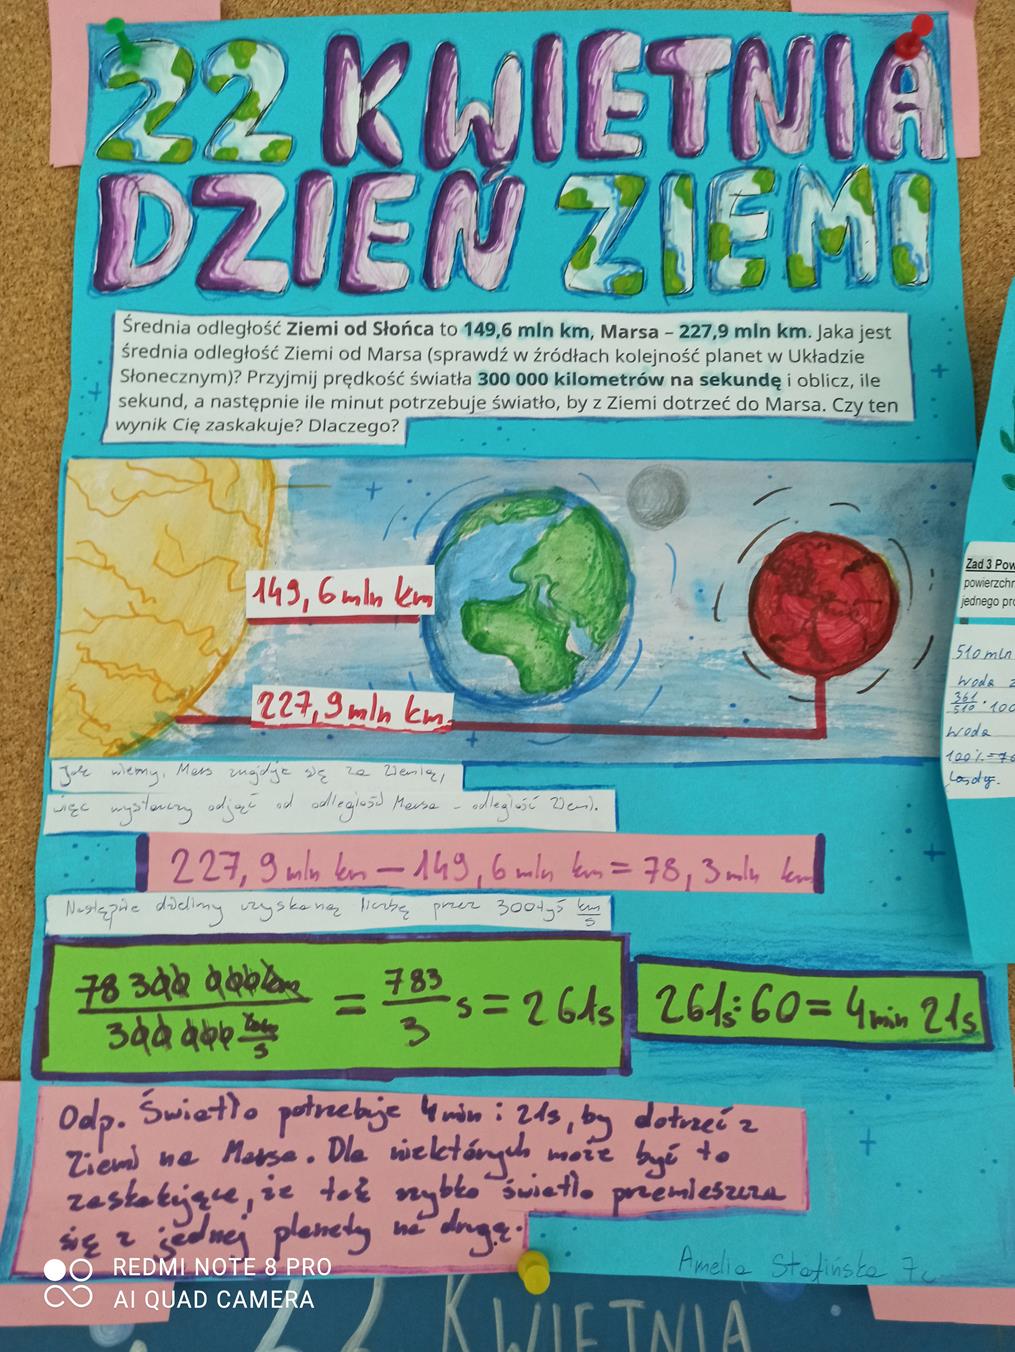 22 KWIETNIA
DZIEŃ ZIEMI
Średnia odległość Ziemi od Słońca to 149,6 mln km, Marsa – 227,9 mln km. Jaka jest
średnia odległość Ziemi od Marsa (sprawdź w źródłach kolejność planet w Układzie
Słonecznym)? Przyjmij prędkość światła 300 000 kilometrów na sekundę i oblicz, ile
sekund, a następnie ile minut potrzebuje światło, by z Ziemi dotrzeć do Marsa. Czy ten
wynik Cię zaskakuje? Dlaczego?
149,6 mln km
227,9 mln km
Jak wiemy, Mars znajduje się za Ziemią,
więc wystarczy odjąć od odległości Marsa - odległość Ziemi.
227,9 mln km – 149,6 mln km = 78,3 mln km
Następnie dzielimy uzyskaną liczbę przez 300tyś km/s
78 300 000 km / 300 000 km/s = 783/3 s = 261s
261s : 60 = 4 min 21s
Odp. Światło potrzebuje 4 min i 21s, by dotrzeć z
Ziemi na Marsa. Dla niektórych może być to
zaskakujące, że tak szybko światło przemieszcza
się z jednej planety na drugą.
Amelia Stafińska 7c
Zad 3 Pow
powierzchn
jednego pro
510 mln
Woda z
361/510 · 100
Woda
100% - 70
Lądy.
22 KWIETNIA
REDMI NOTE 8 PRO
AI QUAD CAMERA